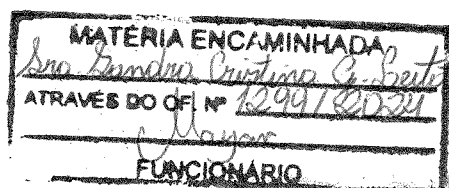 MATÉRIA ENCAMINHADA
Sra Sandra Cristina C. Leite
ATRAVÉS DO OF. Nº 1299/2024
Mayar
FUNCIONÁRIO